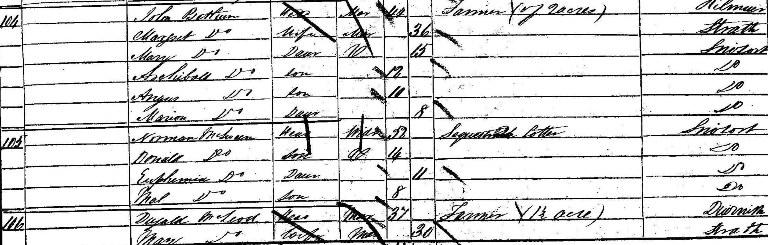 104 John Bethun Head Mar 44 Farmer (of 2 acres) Kilmuir
Margret Do Wife Mar 36 Strath
Mary Do Daur U 15 Snizort
Archibald Do Son 12 Do
Angus Do Son 10 Do
Marion Do Daur 8 Do
105 Norman Head Widr Cotter Snizort
Donald Do Son U 14 Do
Euphemia Do Daur 11 Do
Do Son 8 Do
106 Donald McLeod Head Mar 37 Farmer (1½ acre)
Mary Do Wife Mar 30 Strath